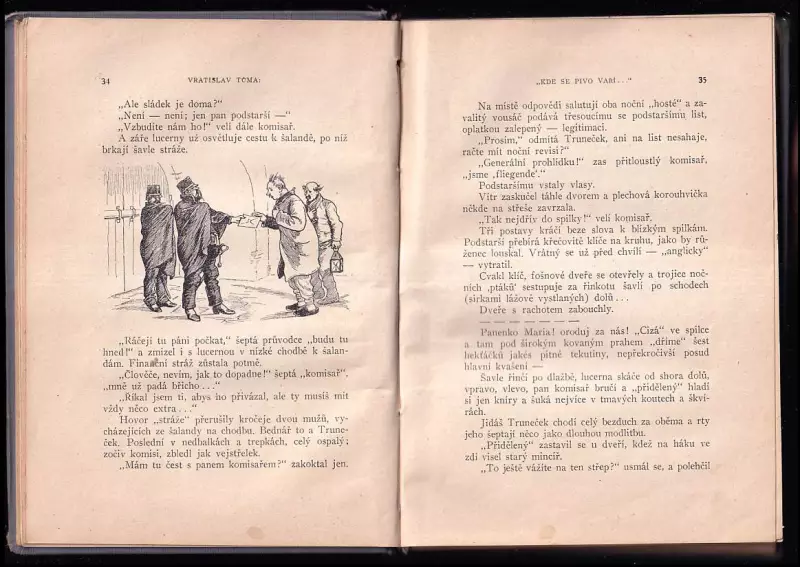 34
VRATISLAV TOMA:
„Ale sládek je doma?“
„Není — není; jen pan podstarší —“
„Vzbudíte nám ho!“ velí dále komisař.
A záře lucerny už osvětluje cestu k šalandě, po níž
brkají šavle stráže.
„Ráčejí tu páni počkat,“ šeptá průvodce „budu tu
hned!“ a zmizel i s lucernou v nízké chodbě k šalan-
dám. Finanční stráž zůstala potmě.
„Člověče, nevím, jak to dopadne!“ šeptá „komisař“.
„mně už padá břicho...“
„Říkal jsem ti, abys ho přivázal, ale ty musíš mít
vždy něco extra...“
Hovor „stráže“ přerušily kročeje dvou mužů, vy-
cházejících ze šalandy na chodbu. Bednář to a Trune-
ček. Poslední v nedbalkách a trepkách, celý ospalý;
zočiv komisi, zbledl jak vejstřelek.
„Mám tu čest s panem komisařem?“ zakoktal jen.
„KDE SE PIVO VAŘÍ...“
35
Na místě odpovědi salutují oba noční „hosté“ a za-
valitý vousáč podává třesoucímu se podstaršímu list,
oplatkou zalepený — legitimaci.
„Prosím,“ odmítá Truneček, ani na list nesahaje,
račte mít noční revisi?“
„Generální prohlídku!“ zas přitloustlý komisař,
„jsme ‚fliegende‘.“
Podstaršímu vstaly vlasy.
Vítr zaskučel táhle dvorem a plechová korouhvička
někde na střeše zavrzala.
„Tak nejdřív do spilky!“ velí komisař.
Tři postavy kráčí beze slova k blízkým spilkám.
Podstarší přebírá křečovitě klíče na kruhu, jako by rů-
ženec louskal. Vrátný se už před chvílí — „anglicky“
— vytratil.
Cvakl klíč, fošnové dveře se otevřely a trojice noč-
ních ‚ptáků‘ sestupuje za řinkotu šavlí po schodech
(sirkami lážově vystlaných) dolů...
Dveře s rachotem zabouchly.
— — — — — — — —
Panenko Maria! oroduj za nás! „Cizá“ ve spilce
a tam pod širokým kovaným prahem „dříme“ šest
hektáčků jakés pitné tekutiny, nepřekročivší posud
hlavní kvašení —
Šavle řinčí po dlažbě, lucerna skáče od shora dolů,
vpravo, vlevo, pan komisař bručí a „přidělený“ hladí
si jen kníry a šuká nejvíce v tmavých koutech a škví-
rách.
Jidáš Truneček chodí celý bezduch za oběma a rty
jeho šeptají něco jako dlouhou modlitbu.
„Přidělený“ zastavil se u dveří, kdež na háku ve
zdi visel starý mincíř.
„To ještě vážíte na ten střep?“ usmál se, a polehčil